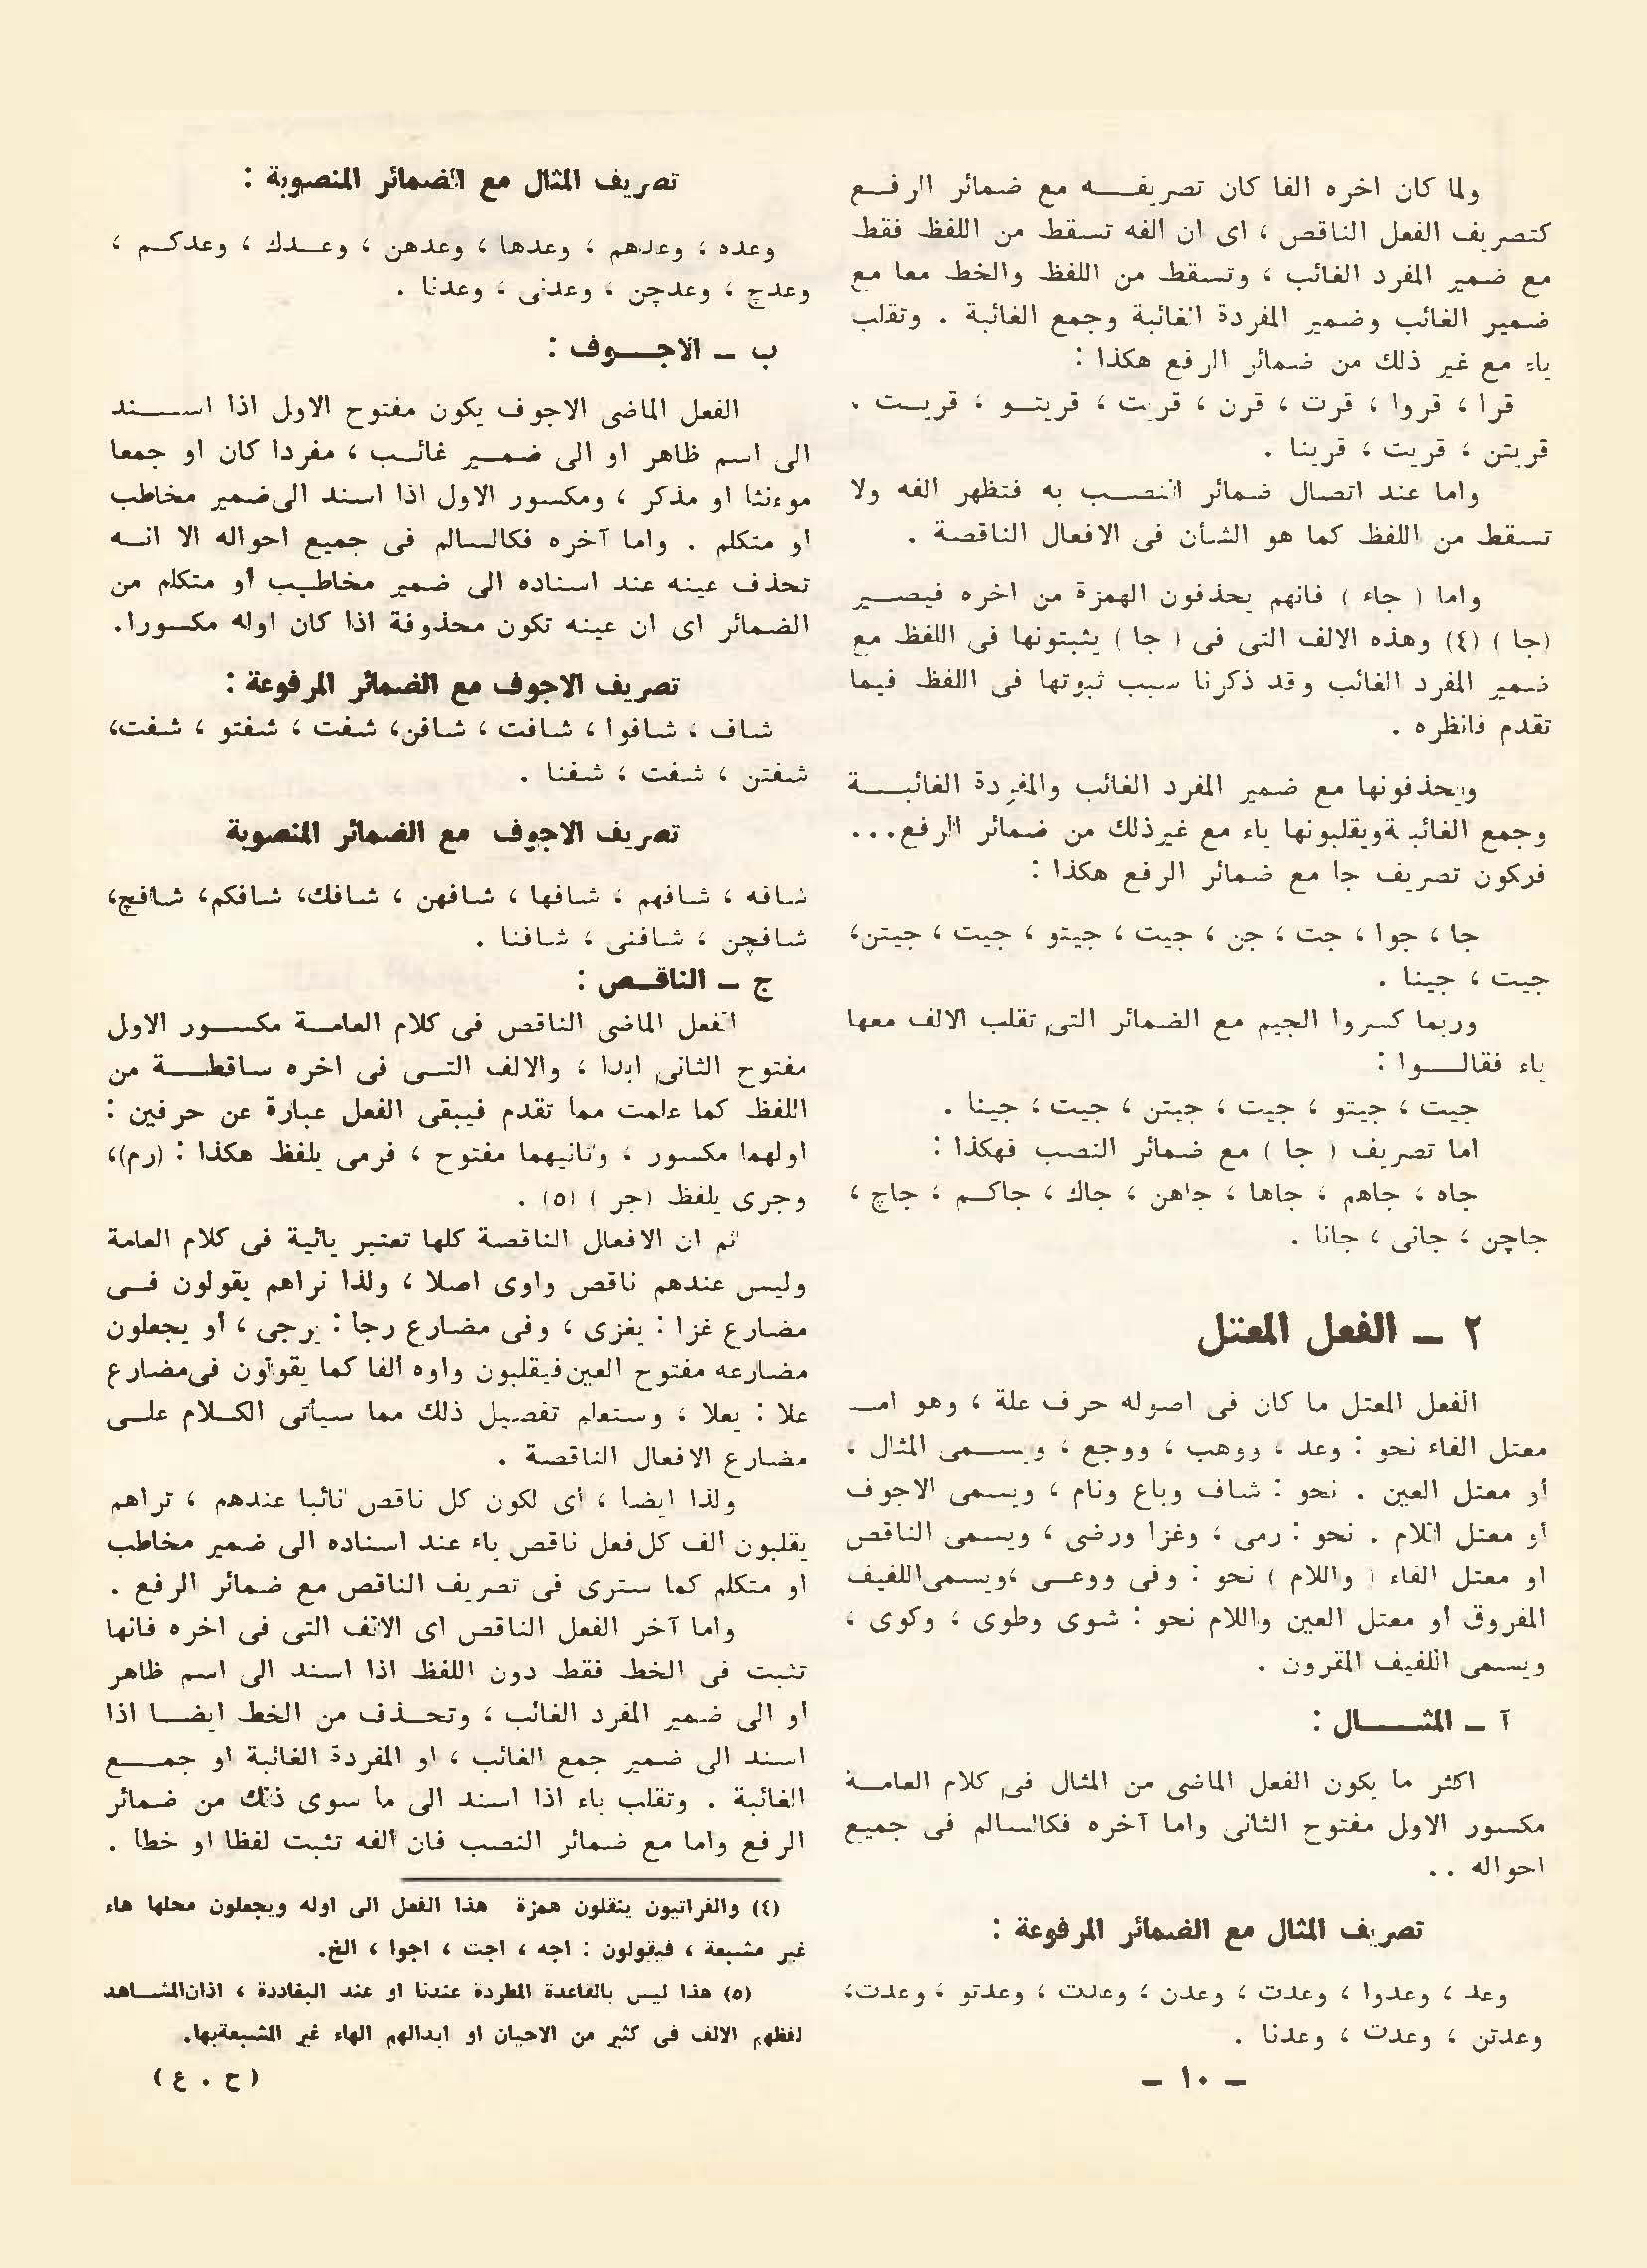 ولما كان اخره الفا كان تصريفـــه مع ضمائر الرفـع
كتصريف الفعل الناقص ، اى ان الفه تسقط من اللفظ فقط
مع ضمير المفرد الغائب ، وتسقط من اللفظ والخط معا مع
ضمير الغائب وضمير المفردة الغائبة وجمع الغائبة . وتقلب
ياء مع غير ذلك من ضمائر الرفع هكذا :
قرا ، قروا ، قرت ، قرن ، قريت ، قريتـو ، قريـت .
قريتن ، قريت ، قرينا .
واما عند اتصال ضمائر النصـب به فتظهر الفه ولا
تسقط من اللفظ كما هو الشأن فى الافعال الناقصة .
واما ( جاء ) فانهم يحذفون الهمزة من اخره فيصـير
(جا ) (٤) وهذه الالف التى فى ( جا ) يثبتونها فى اللفظ مع
ضمير المفرد الغائب وقد ذكرنا سبب ثبوتها فى اللفظ فيما
تقدم فانظره .
ويحذفونها مع ضمير المفرد الغائب والمفردة الغائبـــة
وجمع الغائبة ويقلبونها ياء مع غيرذلك من ضمائر الرفع...
فركون تصريف جا مع ضمائر الرفع هكذا :
جا ، جوا ، جت ، جن ، جيت ، جيتو ، جيت ، جيتن،
جيت ، جينا .
وربما كسروا الجيم مع الضمائر التى تقلب الالف معها
ياء فقالـــوا :
جيت ، جيتو ، جيت ، جيتن ، جيت ، جينا .
اما تصريف ( جا ) مع ضمائر النصب فهكذا :
جاه ، جاهم ، جاها ، جاهن ، جاك ، جاكـم ، جاچ ،
جاچن ، جانى ، جانا .
٢ ـ الفعل المعتل
الفعل المعتل ما كان فى اصوله حرف علة ، وهو امـ
معتل الفاء نحو : وعد ، ووهب ، ووجع ، ويســمى المثال ،
أو معتل العين . نحو : شاف وباع ونام ، ويسمى الاجوف
أو معتل اللام . نحو : رمى ، وغزا ورضى ، ويسمى الناقص
او معتل الفاء ( واللام ) نحو : وفى ووعـى ،ويسمى اللفيف
المفروق أو معتل العين واللام نحو : شوى وطوى ، وكوى ،
ويسمى اللفيف المقرون .
آ ـ المثـــــال :
اكثر ما يكون الفعل الماضى من المثال فى كلام العامـة
مكسور الاول مفتوح الثانى واما آخره فكالسالم فى جميع
احواله ..
تصريف المثال مع الضمائر المرفوعة :
وعد ، وعدوا ، وعدت ، وعدن ، وعدت ، وعدتو ، وعدت،
وعدتن ، وعدت ، وعدنا .
ـ ١٠ ـ
تصريف المثال مع الضمائر المنصوبة :
وعده ، وعدهم ، وعدها ، وعدهن ، وعـدك ، وعدكـم ،
وعدچ ، وعدچن ، وعدنى ، وعدنا .
ب ـ الاجــوف :
الفعل الماضى الاجوف يكون مفتوح الاول اذا اســـند
الى اسم ظاهر او الى ضمـير غائـب ، مفردا كان او جمعا
موءنثا او مذكر ، ومكسور الاول اذا اسند الى ضمير مخاطب
او متكلم . واما آخره فكالسالم فى جميع احواله الا انـه
تحذف عينه عند اسناده الى ضمير مخاطـب أو متكلم من
الضمائر اى ان عينه تكون محذوفة اذا كان اوله مكسورا.
تصريف الاجوف مع الضمائر المرفوعة :
شاف ، شافوا ، شافت ، شافن، شفت ، شفتو ، شفت،
شفتن ، شفت ، شفنا .
تصريف الاجوف مع الضمائر المنصوبة
شافه ، شافهم ، شافها ، شافهن ، شافك، شافكم، شافچ،
شافچن ، شافنى ، شافنا .
ج ـ الناقـــص :
الفعل الماضى الناقص فى كلام العامـة مكســور الاول
مفتوح الثانى ابدا ، والالف التـى فى اخره ساقطــة من
اللفظ كما علمت مما تقدم فيبقى الفعل عبارة عن حرفين :
اولهما مكسور ، وثانيهما مفتوح ، فرمى يلفظ هكذا : (رم)،
وجرى يلفظ (جر ) (٥) .
ثم ان الافعال الناقصة كلها تعتبر يائية فى كلام العامة
وليس عندهم ناقص واوى اصلا ، ولذا نراهم يقولون فـى
مضارع غزا : يغزى ، وفى مضارع رجا : يرجى ، أو يجعلون
مضارعه مفتوح العين فيقلبون واوه ألفا كما يقولون فى مضارع
علا : يعلا ، وستعلم تفصيل ذلك مما سيأتى الكـلام علـى
مضارع الافعال الناقصة .
ولذا ايضا ، أى لكون كل ناقص نائبا عندهم ، تراهم
يقلبون الف كل فعل ناقص ياء عند اسناده الى ضمير مخاطب
او متكلم كما سترى فى تصريف الناقص مع ضمائر الرفع .
واما آخر الفعل الناقص اى الالف التى فى اخره فانها
تثبت فى الخط فقط دون اللفظ اذا اسند الى اسم ظاهر
او الى ضمير المفرد الغائب ، وتحـذف من الخط ايضـا اذا
اسند الى ضمير جمع الغائب ، او المفردة الغائبة او جمـــع
الغائبة . وتقلب ياء اذا اسند الى ما سوى ذلك من ضمائر
الرفع واما مع ضمائر النصب فان ألفه تثبت لفظا او خطا .
(٤) والفراتيون ينقلون همزة هذا الفعل الى اوله ويجعلون محلها هاء
غير مشبعة ، فيقولون : اجه ، اجت ، اجوا ، الخ.
(٥) هذا ليس بالقاعدة المطردة عندنا او عند البغاددة ، اذان المشـاهد
لفظهم الالف فى كثير من الاحيان او ابدالهم الهاء غير المشبعة بها.
(ح . ع )